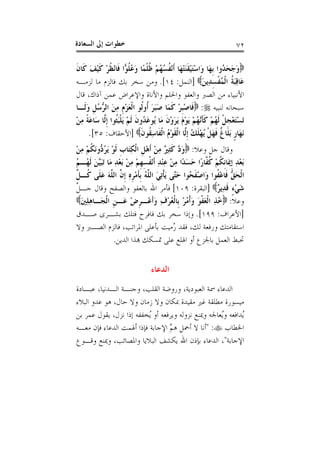 ٧٢
خطوات إلى السعادة
﴿وَجَحَدُوا بِهَا وَاسْتَيْقَنَتْهَا أَنْفُسُهُمْ ظُلْمًا وَعُلُوًّا فَانْظُرْ كَيْفَ كَانَ
عَاقِبَةُ الْمُفْسِدِينَ﴾ [النمل: ١٤]. ومن سخر بك فالزم ما لزمـــه
الأنبياء من الصبر والعفو والحلم والأناة والإعراض عمن آذاك، قال
سبحانه لنبيه ﷺ: ﴿فَاصْبِرْ كَمَا صَبَرَ أُولُو الْعَزْمِ مِنَ الرُّسُلِ وَلَــا
تَسْتَعْجِلْ لَهُمْ كَأَنَّهُمْ يَوْمَ يَرَوْنَ مَا يُوعَدُونَ لَمْ يَلْبَثُوا إِلَّا سَاعَةً مِنْ
نَهَارٍ بَلَاغٌ فَهَلْ يُهْلَكُ إِلَّا الْقَوْمُ الْفَاسِقُونَ﴾ [الأحقاف: ٣٥].
وقال جل وعلا: ﴿وَدَّ كَثِيرٌ مِنْ أَهْلِ الْكِتَابِ لَوْ يَرُدُّونَكُمْ مِنْ
بَعْدِ إِيمَانِكُمْ كُفَّارًا حَسَدًا مِنْ عِنْدِ أَنْفُسِـــهِمْ مِنْ بَعْدِ مَا تَبَيَّنَ لَهُـــمُ
الْحَقُّ فَاعْفُوا وَاصْفَحُوا حَتَّى يَأْتِيَ اللَّهُ بِأَمْرِهِ إِنَّ اللَّهَ عَلَى كُـــلِّ
شَيْءٍ قَدِيرٌ﴾ [البقرة: ١٠٩] فأمر الله بالعفو والصفح وقال جـــل
وعلا: ﴿خُذِ الْعَفْوَ وَأْمُرْ بِالْعُرْفِ وَأَعْـــرِضْ عَـــنِ الْجَـــاهِلِينَ﴾
[الأعراف: ١٩٩]. وإذا سخر بك فافرح فتلك بشـــرى صـــدق
استقامتك ورفعة لك، فقد رُميت بأعلى المراتب، فالزم الصـــبر ولا
تحبط العمل بالجزع أو الهلع على تمسكك هذا الدين.
الدعاء
الدعاء سمة العبودية، وروضة القلب، وجنـــة الـــدنيا، عبـــادة
ميسورة مطلقة غير مقيدة بمكان ولا زمان ولا حال، هو عدو البلاء
يُدافعه ويُعالجه ويمنع نزوله ويرفعه أو يُخففه إذا نزل، يقول عمر بن
الخطاب ﷺ: "أنا لا أحمل همَّ الإجابة فإذا أُلهمت الدعاء فإن معـــه
الإجابة"، الدعاء بإذن الله يكشف البلايا والمصائب، ويمنع وقـــوع